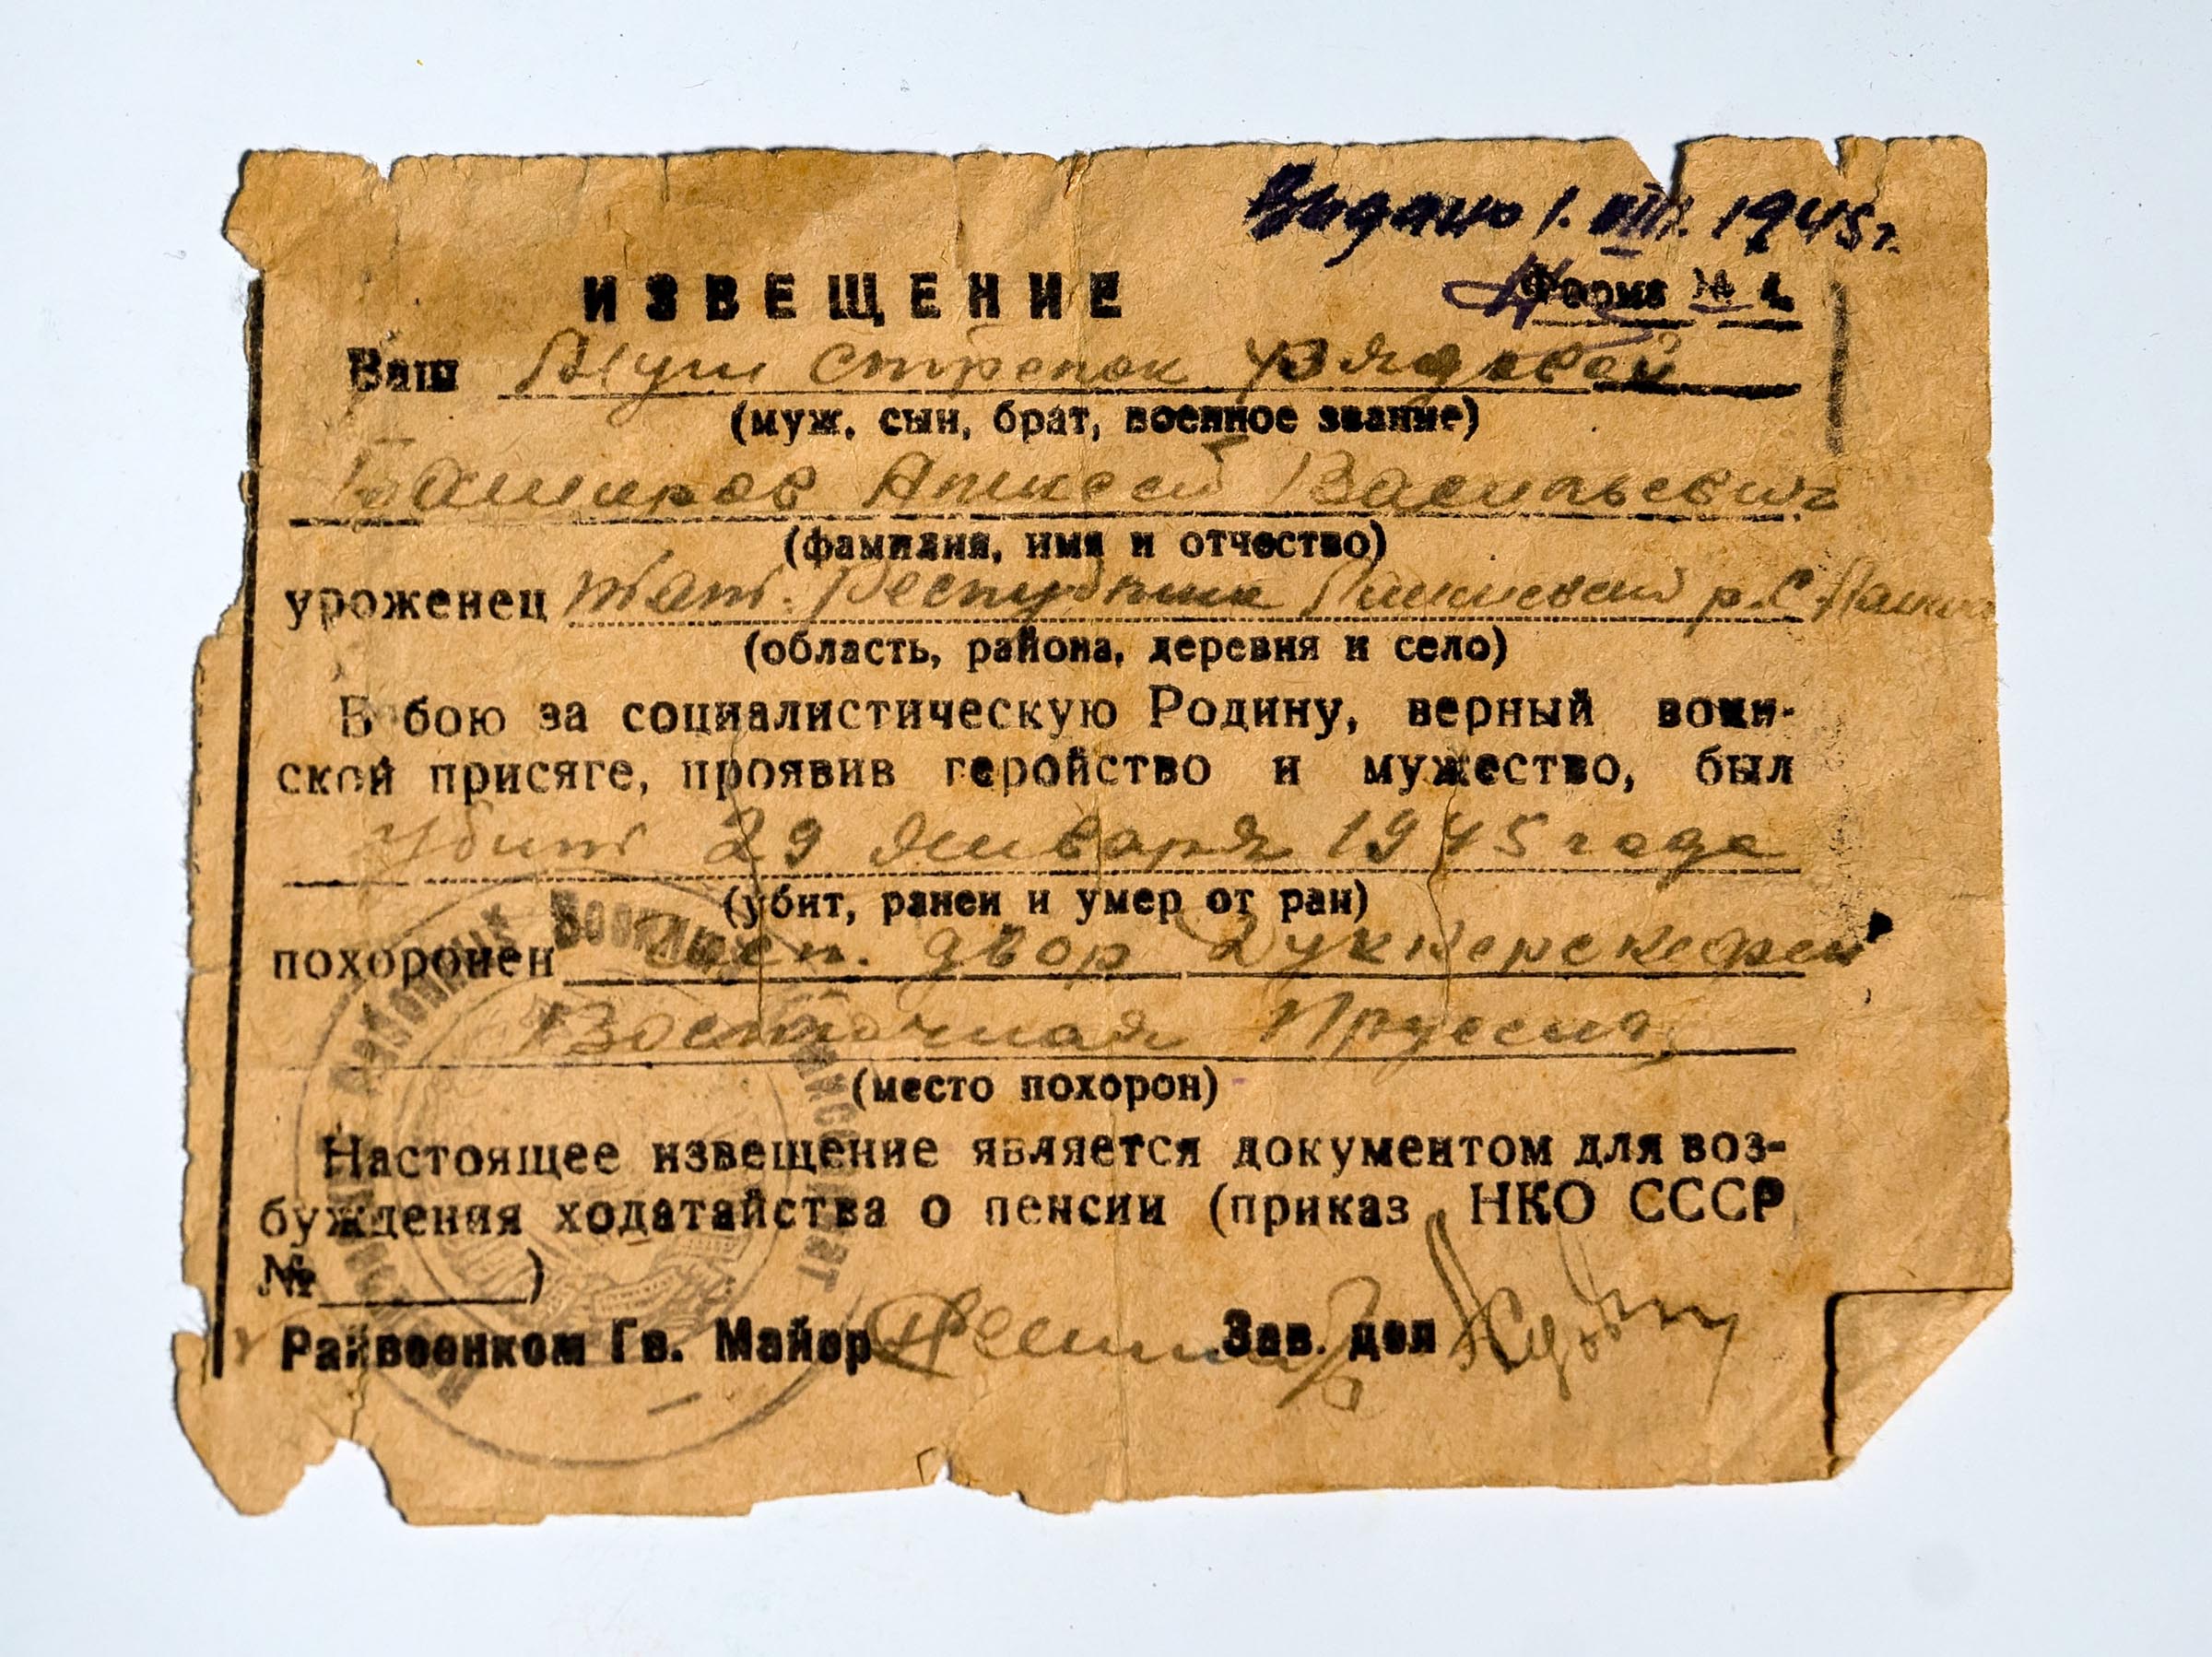 Выдано 1. VIII. 1945 г.
ИЗВЕЩЕНИЕ Форма № 4
Ваш Муж стрелок рядовой
(муж, сын, брат, военное звание)
Баширов Алексей Васильевич
(фамилия, имя и отчество)
уроженец Тат. Республики р. С.
(область, района, деревня и село)
В бою за социалистическую Родину, верный воин-
ской присяге, проявив геройство и мужество, был
убит 29 января 1945 года
(убит, ранен и умер от ран)
похоронен Госп. двор
Восточная Пруссия
(место похорон)
Настоящее извещение является документом для воз-
буждения ходатайства о пенсии (приказ НКО СССР
№ )
Райвоенком Гв. Майор Зав. дел
Районный Военный Комиссариат